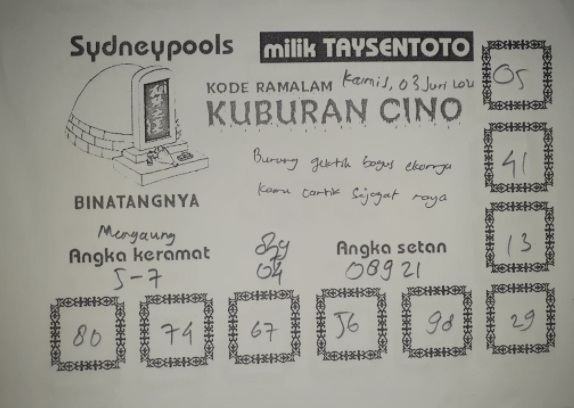 Sydneypools
milik TAYSENTOTO
KODE RAMALAM Kamis, 03 Juni 2021
KUBURAN CINO
05
Burung gletik bagus ekornya
kamu cantik sejagat raya
41
BINATANGNYA
Mengaung
13
Angka keramat
5-7
89
04
Angka setan
08921
80
74
67
56
98
29